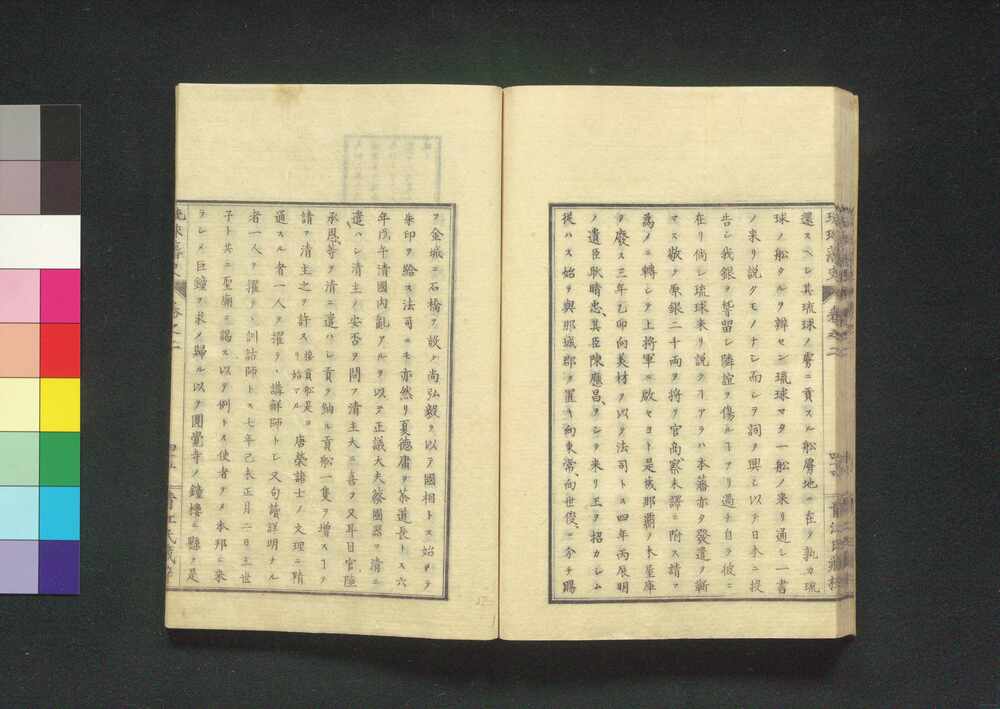 琉球藩史 卷之二
還スヘシ其琉球ノ虜ニ貢スル船虜地ニ在テ孰カ琉
球ノ船タルヲ辨セン琉球マタ一船ノ來リ通シ一書
ノ來リ說クモノナシ而シテ詞ヲ興シ以テ日本ニ投
告シ我銀ヲ暫留シ隣誼ヲ傷ルヿアリ過チ自ラ彼ニ
在リ倘シ琉球來リ說クヿアラハ本藩亦タ發遣ヲ斷
マス敬テ原銀二十兩ヲ將テ官商察木譯ニ附ス請フ
爲メニ轉シテ上將軍ニ啟セヨト是歲那覇ノ木屋庫
ヲ廢ス三年乙卯向美材ヲ以テ法司トス四年丙辰明
ノ遺臣耿精忠、其臣陳應昌、ヲシテ來リ王ヲ招カシム
從ハス始テ與那城郡ヲ置キ向東常、向世俊、ニ分チ賜
フ金城ニ石橋ヲ設ク尚弘毅ヲ以テ國相トス始メテ
朱印ヲ給ス法司ニモ亦然リ夏德庸ヲ茶道長トス六
年戊午清國內亂アルヲ以テ正議大夫蔡國器ヲ清ニ
遣ハシ清主ノ安否ヲ問フ清主大ニ喜ヲ又耳目官陸
承恩、等ヲ清ニ遣ハシ貢ヲ納ル貢船一隻ヲ增スヿヲ
請フ清主之ヲ許ス接貢船是ヨリ始マル唐榮諸士ノ文理ニ精
通スル者一人ヲ擢テ講解師トシ又句讀詳明ナル
者一人ヲ擢テ訓詁師トス七年己未正月二日王世
子ト共ニ聖廟ニ謁ス以テ例トス使者ヲ本邦ニ來
ラシメ巨鐘ヲ求メ歸ル以テ圓覺寺ノ鐘樓ニ縣ク是